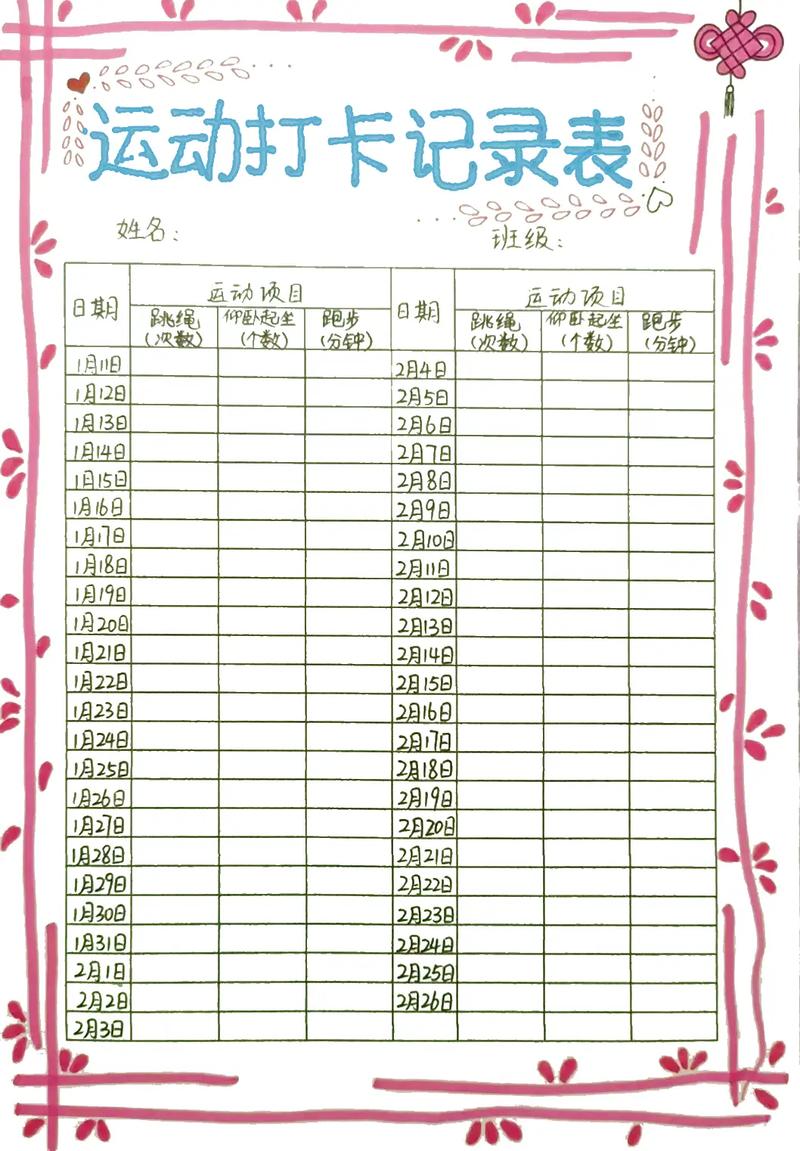 运动打卡记录表
姓名： 班级：
日期 运动项目 日期 运动项目
跳绳（次数） 仰卧起坐（个数） 跑步（分钟） 跳绳（次数） 仰卧起坐（个数） 跑步（分钟）
1月11日 2月4日
1月12日 2月5日
1月13日 2月6日
1月14日 2月7日
1月15日 2月8日
1月16日 2月9日
1月17日 2月10日
1月18日 2月11日
1月19日 2月12日
1月20日 2月13日
1月21日 2月14日
1月22日 2月15日
1月23日 2月16日
1月24日 2月17日
1月25日 2月18日
1月26日 2月19日
1月27日 2月20日
1月28日 2月21日
1月29日 2月22日
1月30日 2月23日
1月31日 2月24日
2月1日 2月25日
2月2日 2月26日
2月3日